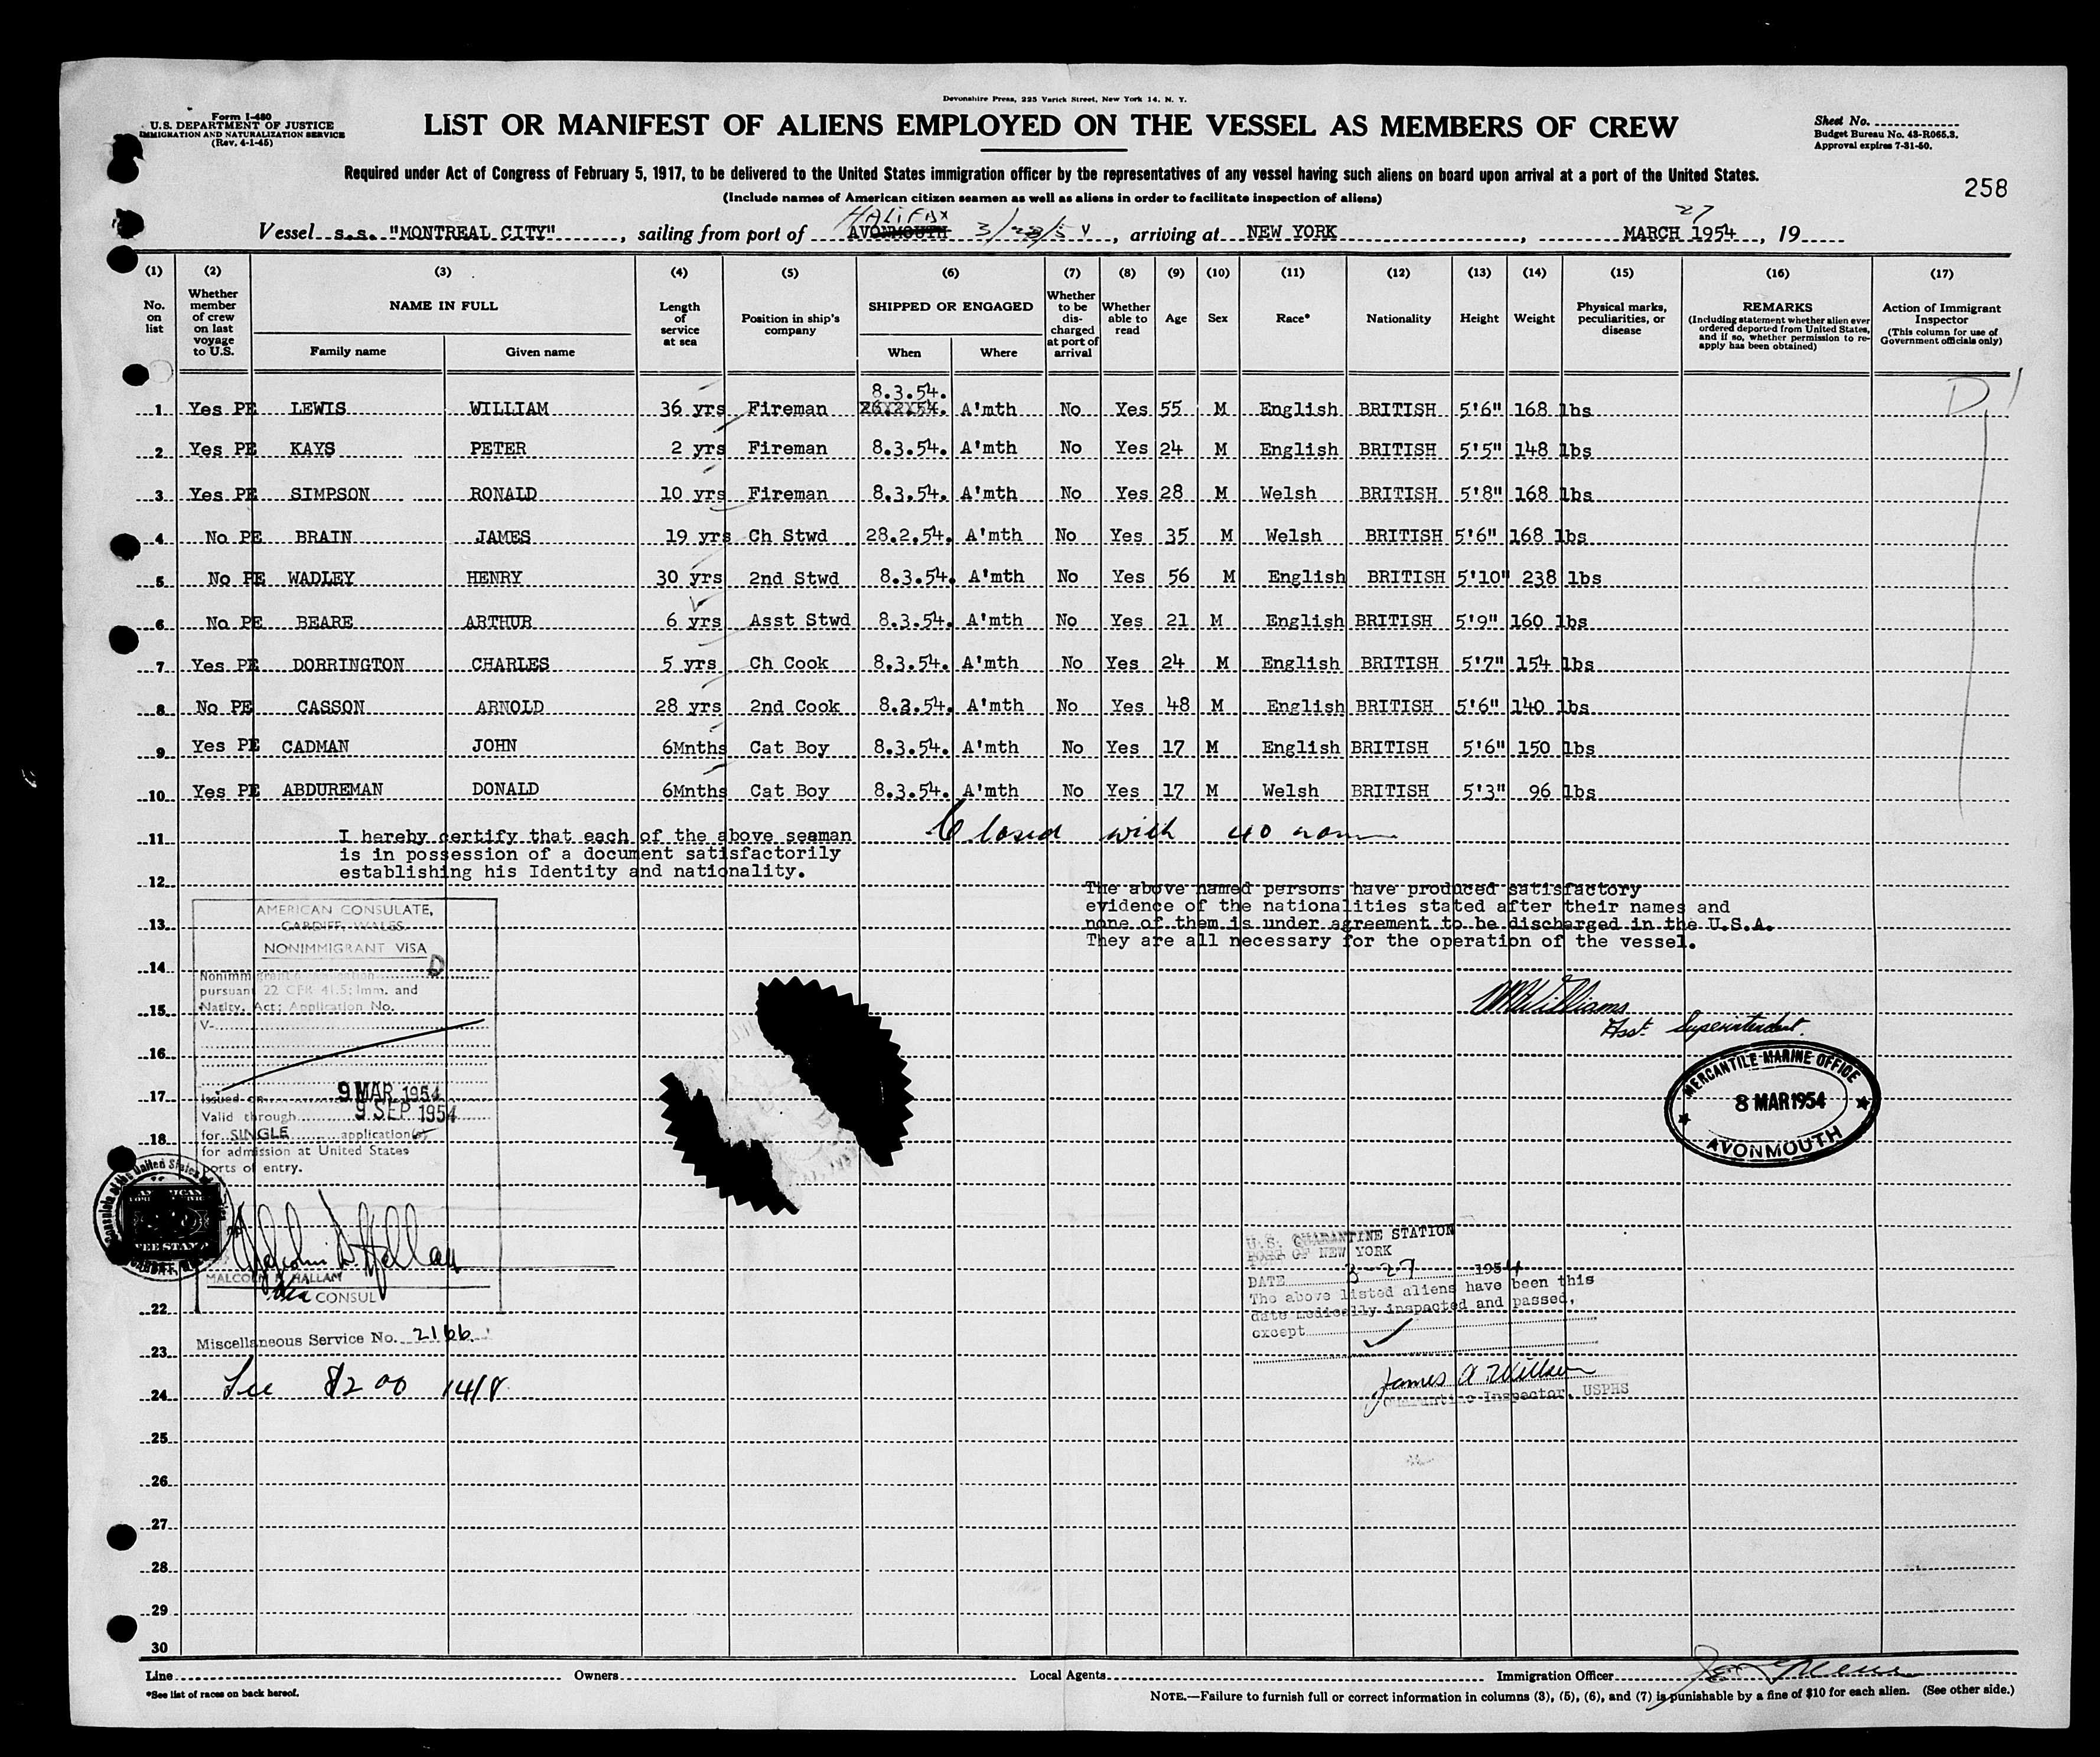 Devonshire Press, 225 Varick Street, New York 14, N. Y.
Form I-480
U.S. DEPARTMENT OF JUSTICE
IMMIGRATION AND NATURALIZATION SERVICE
(Rev. 4-1-45)
LIST OR MANIFEST OF ALIENS EMPLOYED ON THE VESSEL AS MEMBERS OF CREW
Sheet No.
Budget Bureau No. 43-R065.3.
Approval expires 7-31-50.
Required under Act of Congress of February 5, 1917, to be delivered to the United States immigration officer by the representatives of any vessel having such aliens on board upon arrival at a port of the United States.
(Include names of American citizen seamen as well as aliens in order to facilitate inspection of aliens)
258
HALIFAX 27
Vessel s.s. "MONTREAL CITY", sailing from port of AVONMOUTH, arriving at NEW YORK, MARCH 1954, 19
(1) (2) (3) (4) (5) (6) (7) (8) (9) (10) (11) (12) (13) (14) (15) (16) (17)
No. on list
Whether member of crew on last voyage to U.S.
NAME IN FULL
Family name
Given name
Length of service at sea
Position in ship's company
SHIPPED OR ENGAGED
When
Where
Whether to be discharged at port of arrival
Whether able to read
Age
Sex
Race*
Nationality
Height
Weight
Physical marks, peculiarities, or disease
REMARKS
(Including statement whether alien ever ordered deported from United States, and if so, whether permission to re-apply has been obtained)
Action of Immigrant Inspector
(This column for use of Government officials only)
8.3.54.
1 Yes PE LEWIS WILLIAM 36 yrs Fireman 26.2.54. A'mth No Yes 55 M English BRITISH 5'6" 168 lbs D
2 Yes PE KAYS PETER 2 yrs Fireman 8.3.54. A'mth No Yes 24 M English BRITISH 5'5" 148 lbs
3 Yes PE SIMPSON RONALD 10 yrs Fireman 8.3.54. A'mth No Yes 28 M Welsh BRITISH 5'8" 168 lbs
4 No PE BRAIN JAMES 19 yrs Ch Stwd 28.2.54. A'mth No Yes 35 M Welsh BRITISH 5'6" 168 lbs
5 No PE WADLEY HENRY 30 yrs 2nd Stwd 8.3.54. A'mth No Yes 56 M English BRITISH 5'10" 238 lbs
6 No PE BEARE ARTHUR 6 yrs Asst Stwd 8.3.54. A'mth No Yes 21 M English BRITISH 5'9" 160 lbs
7 Yes PE DORRINGTON CHARLES 5 yrs Ch Cook 8.3.54. A'mth No Yes 24 M English BRITISH 5'7" 154 lbs
8 No PE CASSON ARNOLD 28 yrs 2nd Cook 8.3.54. A'mth No Yes 48 M English BRITISH 5'6" 140 lbs
9 Yes PE CADMAN JOHN 6Mnths Cat Boy 8.3.54. A'mth No Yes 17 M English BRITISH 5'6" 150 lbs
10 Yes PE ABDUREMAN DONALD 6Mnths Cat Boy 8.3.54. A'mth No Yes 17 M Welsh BRITISH 5'3" 96 lbs
Closed with 40
11
12
13
14
15
16
17
18
22
23
24
25
26
27
28
29
30
I hereby certify that each of the above seaman
is in possession of a document satisfactorily
establishing his Identity and nationality.
The above named persons have produced satisfactory
evidence of the nationalities stated after their names and
none of them is under agreement to be discharged in the U.S.A.
They are all necessary for the operation of the vessel.
Williams
Asst. Superintendent
MERCANTILE MARINE OFFICE
8 MAR 1954
AVONMOUTH
AMERICAN CONSULATE,
CARDIFF, WALES.
NONIMMIGRANT VISA
D
pursuant 22 CFR 41.5; Imm. and
Natlty. Act; Application No.
V-
Issued on 9 MAR 1954
Valid through 9 SEP 1954
for SINGLE application(s)
for admission at United States
ports of entry.
MALCOLM P. HALLAM
Vice CONSUL
Miscellaneous Service No. 2166
Fee $2 00 14/8
U.S. QUARANTINE STATION
PORT OF NEW YORK
DATE 3-27 1954
The above listed aliens have been this
date medically inspected and passed,
except
James A. Willson
Quarantine Inspector, USPHS
Line Owners Local Agents Immigration Officer
*See list of races on back hereof.
NOTE.—Failure to furnish full or correct information in columns (3), (5), (6), and (7) is punishable by a fine of $10 for each alien. (See other side.)